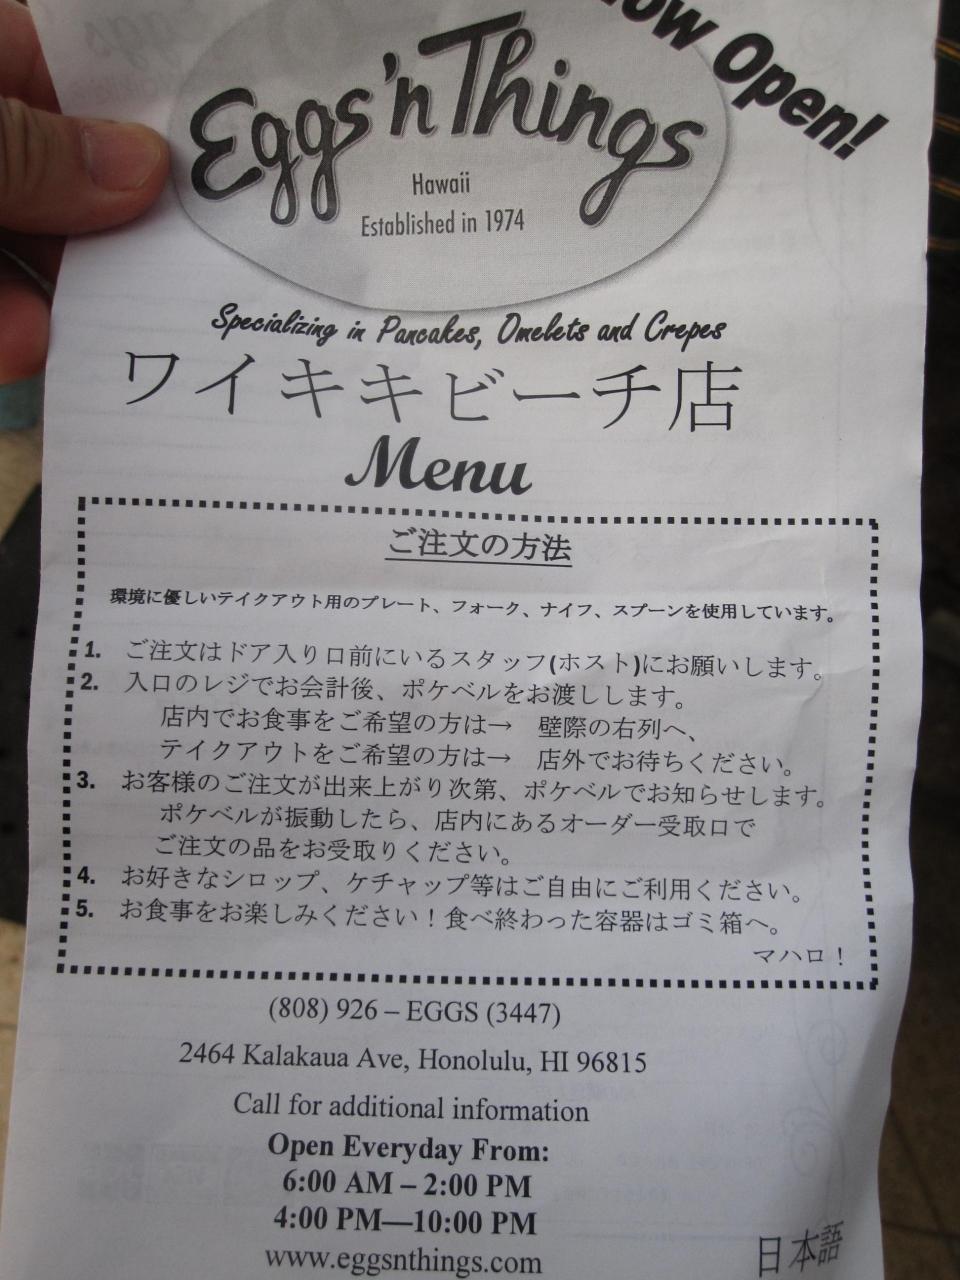 Now Open!
Eggs 'n Things
Hawaii
Established in 1974
Specializing in Pancakes, Omelets and Crepes
ワイキキビーチ店
Menu
ご注文の方法
環境に優しいテイクアウト用のプレート、フォーク、ナイフ、スプーンを使用しています。
1. ご注文はドア入り口前にいるスタッフ(ホスト)にお願いします。
2. 入口のレジでお会計後、ポケベルをお渡しします。
店内でお食事をご希望の方は→ 壁際の右列へ、
テイクアウトをご希望の方は→ 店外でお待ちください。
3. お客様のご注文が出来上がり次第、ポケベルでお知らせします。
ポケベルが振動したら、店内にあるオーダー受取口で
ご注文の品をお受取りください。
4. お好きなシロップ、ケチャップ等はご自由にご利用ください。
5. お食事をお楽しみください！食べ終わった容器はゴミ箱へ。
マハロ！
(808) 926 – EGGS (3447)
2464 Kalakaua Ave, Honolulu, HI 96815
Call for additional information
Open Everyday From:
6:00 AM – 2:00 PM
4:00 PM—10:00 PM
www.eggsnthings.com
日本語